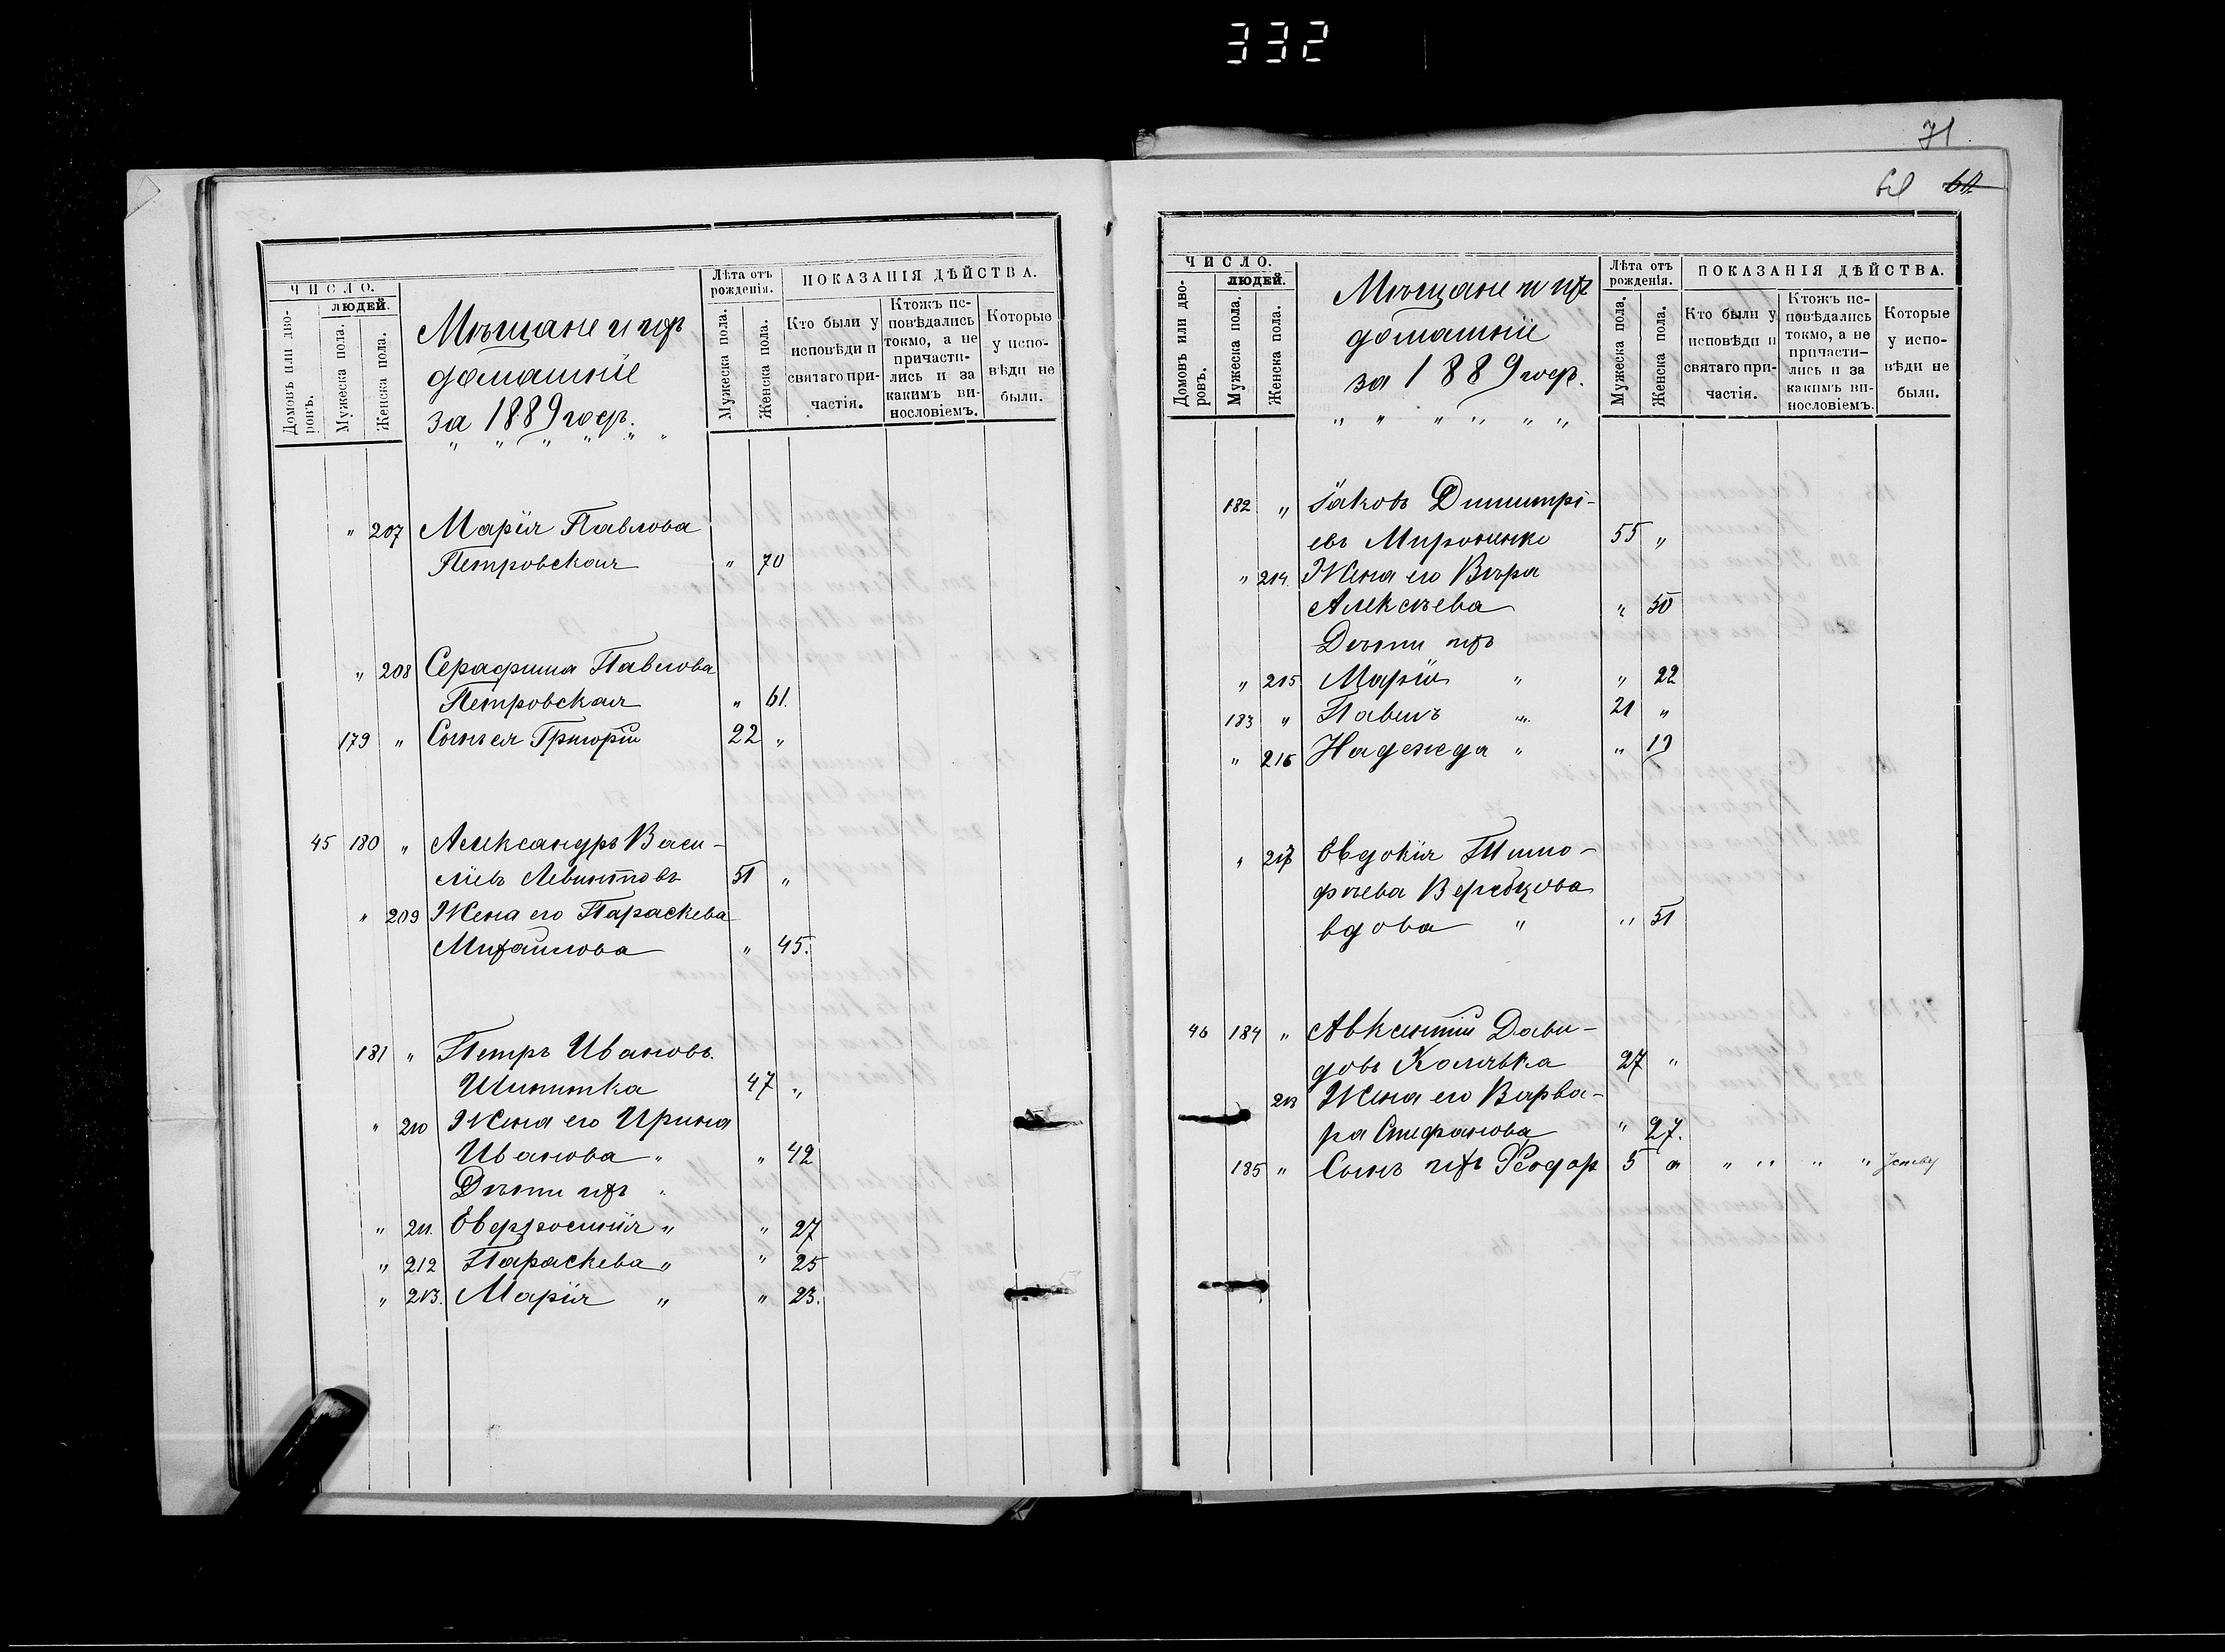 332
71
61 62
ЧИСЛО.
ЛЮДЕЙ.
Домовъ или дворовъ.
Мужеска пола.
Женска пола.
Мѣщане и ихъ
домашніе
за 1889 годъ.
" " " " " "
Лѣта отъ рожденія.
Мужеска пола.
Женска пола.
ПОКАЗАНІЯ ДѢЙСТВА.
Кто были у исповѣди и святаго причастія.
Ктожъ исповѣдались токмо, а не причастились и за какимъ винословіемъ.
Которые у исповѣди не были.
" 207 Марія Павлова
Петровская " 70
" 208 Серафима Павлова
Петровская " 61.
179 " Сынъ ея Григорій 22 "
45 180 " Александръ Васи-
ліевъ Левинтовъ 51 "
" 209 Жена его Параскева
Михайлова " 45.
181 " Петръ Ивановъ.
Шинитка 47 "
" 210 Жена его Ирина
Иванова " " 42
Дѣти ихъ "
" 211. Евфросинія " " 27
" 212 Параскева " " 25
" 213. Марія " " 23.
ЧИСЛО.
ЛЮДЕЙ.
Домовъ или дворовъ.
Мужеска пола.
Женска пола.
Мѣщане и ихъ
домашніе
за 1889 годъ.
" " " " " "
Лѣта отъ рожденія.
Мужеска пола.
Женска пола.
ПОКАЗАНІЯ ДѢЙСТВА.
Кто были у исповѣди и святаго причастія.
Ктожъ исповѣдались токмо, а не причастились и за какимъ винословіемъ.
Которые у исповѣди не были.
182 " Іаковъ Димитрі-
евъ Мироненко 55 "
" 214. Жена его Вѣра
Алексѣева " 50
Дѣти ихъ
" 215 Марія " " 22
183 " Павелъ " 21 "
" 216 Надежда " " 19
" 217 Евдокія Тимо-
фѣева Веребцова
вдова " " 51
46 184 " Авксентій Дави-
довъ Колявка 27 "
218 Жена его Варва-
ра Стефанова " 27.
185 " Сынъ ихъ Ѳеодоръ 5 " " " " "